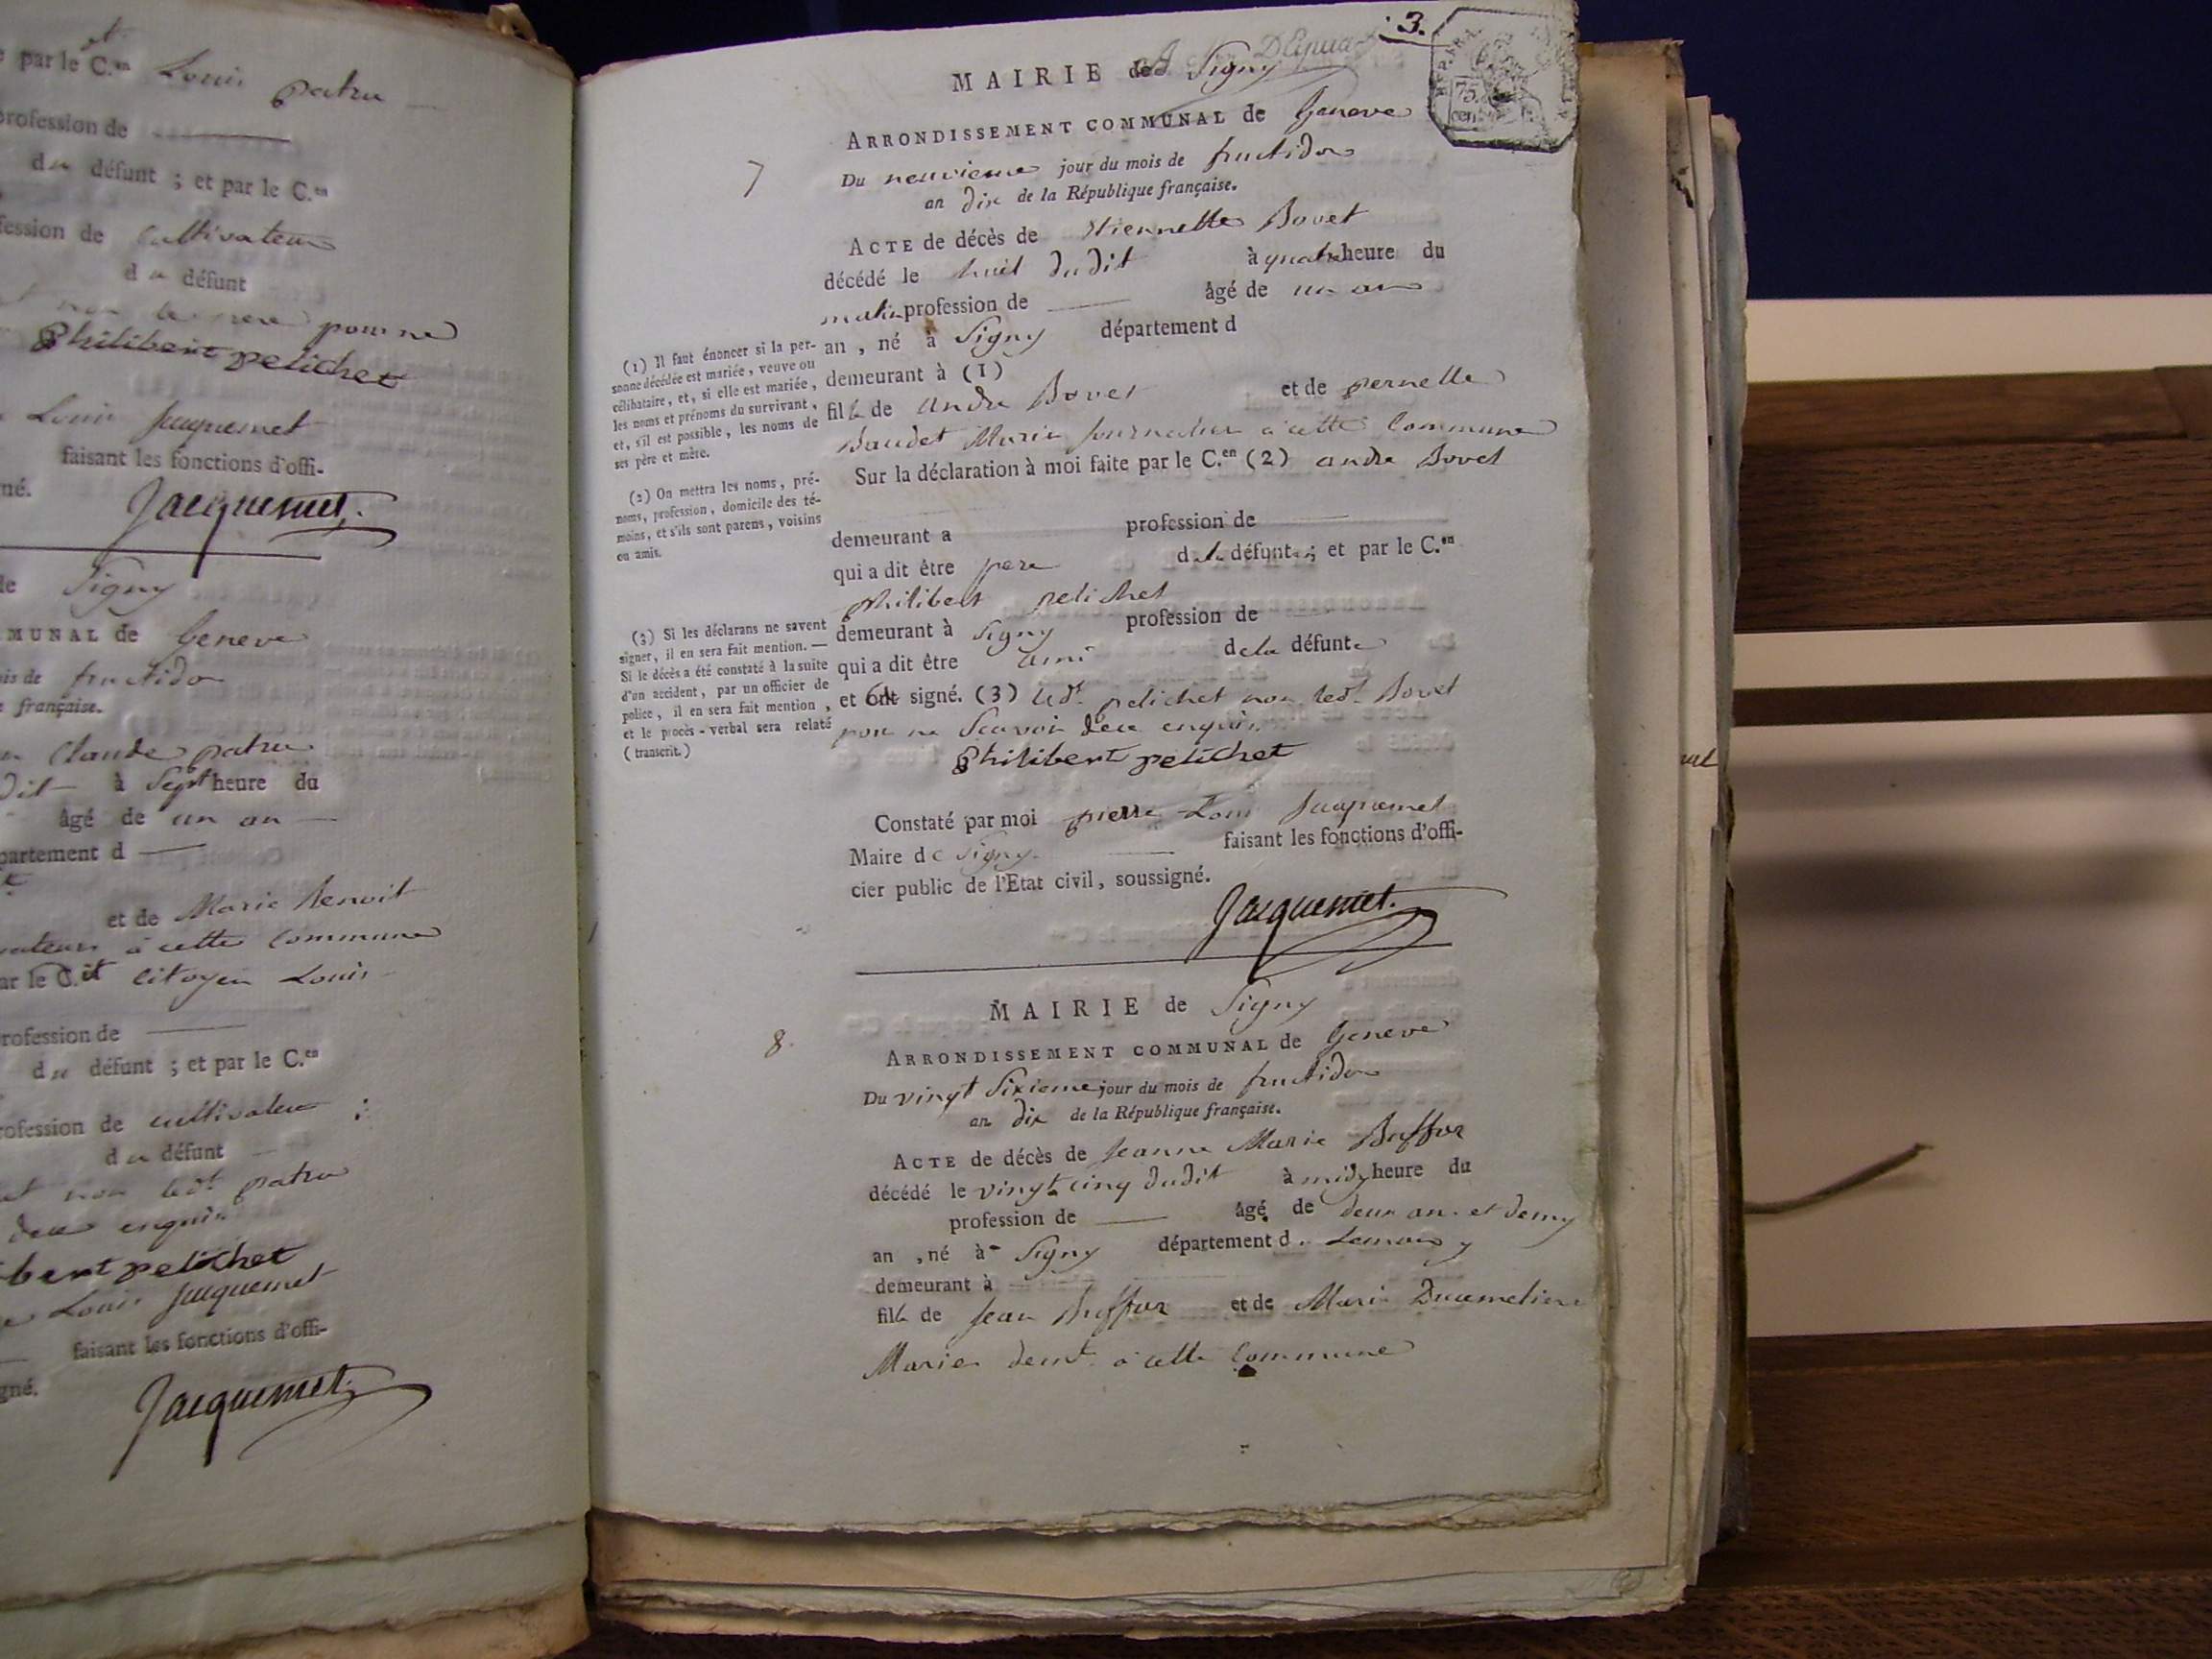 par le C.en Louis patru
profession de
du défunt ; et par le C.en
fession de Cultivateur
du défunt
pour ne
Philibert petichet
Louis Jacquemet
faisant les fonctions d'offi-
né.
Jacquemet.
de Signy
MUNAL de Geneve
ois de fructidor
française.
Claude patru
dit à Sept heure du
âgé de un an
partement d
et de Marie Benoit
à cette Commune
ar le C.it Citoyen Louis
rofession de
du défunt ; et par le C.en
rofession de cultivateur
du défunt
non led.t patru
dece enquis
bert petichet
Louis Jacquemet
faisant les fonctions d'offi-
gné.
Jacquemet.
3.
75
cen
MAIRIE de Signy
ARRONDISSEMENT COMMUNAL de Geneve
7
Du neuvieme jour du mois de fructidor
an dix de la République française.
ACTE de décès de Etiennette Bovet
décédé le huit dudit à quatre heure du
matin profession de âgé de un an
an , né à Signy département d
demeurant à (1)
fille de andre Bovet et de pernette
Baudet Marie Journalier à cette Commune
Sur la déclaration à moi faite par le C.en (2) andre Bovet
demeurant a profession de
qui a dit être pere de la défunte ; et par le C.en
philibert petichet
demeurant à Signy profession de
qui a dit être ami de la défunte
et ont signé. (3) led.t petichet non led.t Bovet
pour ne Scavoir dece enquis
Philibert petichet
Constaté par moi pierre Louis Jacquemet
Maire de Signy faisant les fonctions d'offi-
cier public de l'Etat civil, soussigné.
Jacquemet.
(1) Il faut énoncer si la per-
sonne décédée est mariée, veuve ou
célibataire, et, si elle est mariée,
les noms et prénoms du survivant,
et, s'il est possible, les noms de
ses père et mère.
(2) On mettra les noms, pré-
noms, profession, domicile des té-
moins, et s'ils sont parens, voisins
ou amis.
(3) Si les déclarans ne savent
signer, il en sera fait mention. —
Si le décès a été constaté à la suite
d'un accident, par un officier de
police, il en sera fait mention,
et le procès-verbal sera relaté
(transcrit.)
MAIRIE de Signy
8.
ARRONDISSEMENT COMMUNAL de Geneve
Du vingt Sixieme jour du mois de fructidor
an dix de la République française.
ACTE de décès de Jeanne Marie Buffor
décédé le vingt cinq dudit à midy heure du
profession de âgé de deux an. et demy
an , né à Signy département d. Leman y
demeurant à
fille de Jean Buffor et de Marie
Marier demt. à cette Commune